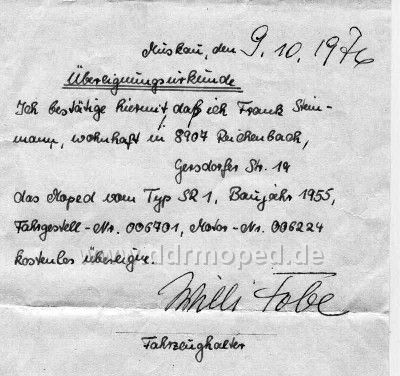 Muskau, den 9.10.1976
Übereignungsurkunde
Ich bestätige hiermit, daß ich Frank Stein-
mann, wohnhaft in 8907 Reichenbach,
Gersdorfer Str. 19
das Moped vom Typ SR 1, Baujahr 1955,
Fahrgestell-Nr. 006701, Motor-Nr. 006224
kostenlos übereigne.
www.ddrmoped.de
Willi Tobe
Fahrzeughalter